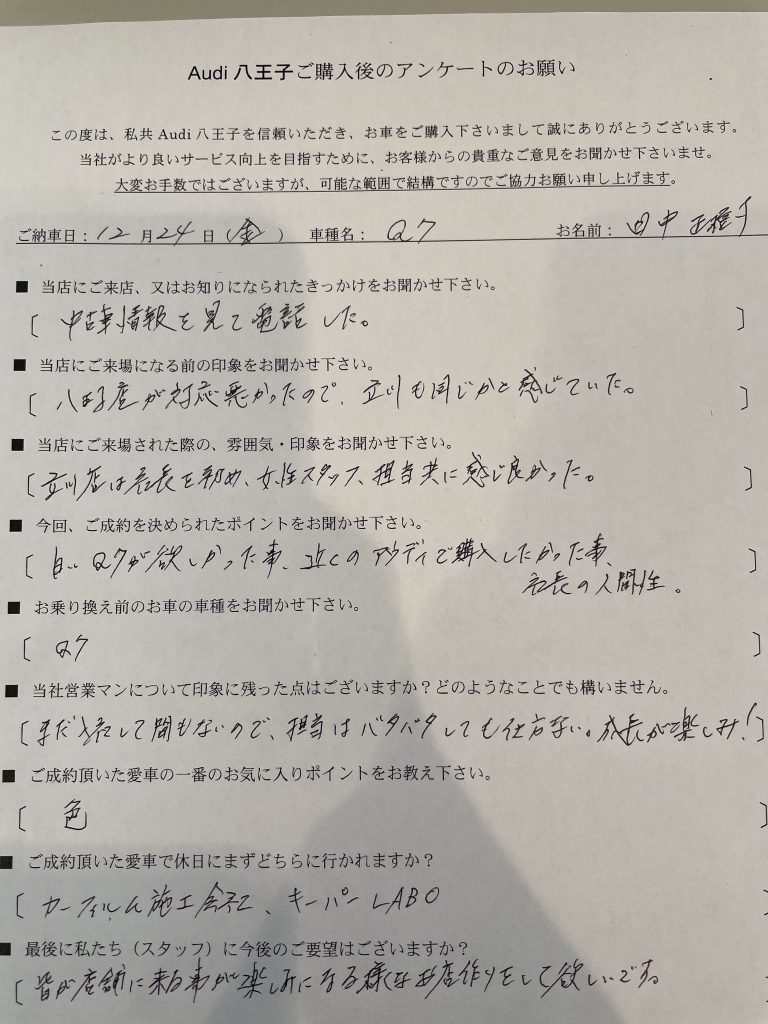 Audi 八王子ご購入後のアンケートのお願い
この度は、私共 Audi 八王子を信頼いただき、お車をご購入下さいまして誠にありがとうございます。
当社がより良いサービス向上を目指すために、お客様からの貴重なご意見をお聞かせ下さいませ。
大変お手数ではございますが、可能な範囲で結構ですのでご協力お願い申し上げます。
ご納車日：12 月 24 日（金） 車種名： Q7 お名前： 田中
■ 当店にご来店、又はお知りになられたきっかけをお聞かせ下さい。
［ 中古車情報を見て電話した。 ］
■ 当店にご来場になる前の印象をお聞かせ下さい。
［ 八王子店が対応悪かったので、立川も同じかと感じていた。 ］
■ 当店にご来場された際の、雰囲気・印象をお聞かせ下さい。
［ 立川店は店長を初め、女性スタッフ、担当共に感じ良かった。 ］
■ 今回、ご成約を決められたポイントをお聞かせ下さい。
［ 白い Q7が欲しかった事、近くのアウディで購入したかった事、 ］
店長の人間性。
■ お乗り換え前のお車の車種をお聞かせ下さい。
［ Q7 ］
■ 当社営業マンについて印象に残った点はございますか？どのようなことでも構いません。
［ まだ入店して間もないので、担当はバタバタしても仕方ない。成長が楽しみ！ ］
■ ご成約頂いた愛車の一番のお気に入りポイントをお教え下さい。
［ 色 ］
■ ご成約頂いた愛車で休日にまずどちらに行かれますか？
［ カーフィルム施工会社、キーパーLABO ］
■ 最後に私たち（スタッフ）に今後のご要望はございますか？
［ 皆が店舗に来る事が楽しみになる様なお店作りをして欲しいです。 ］